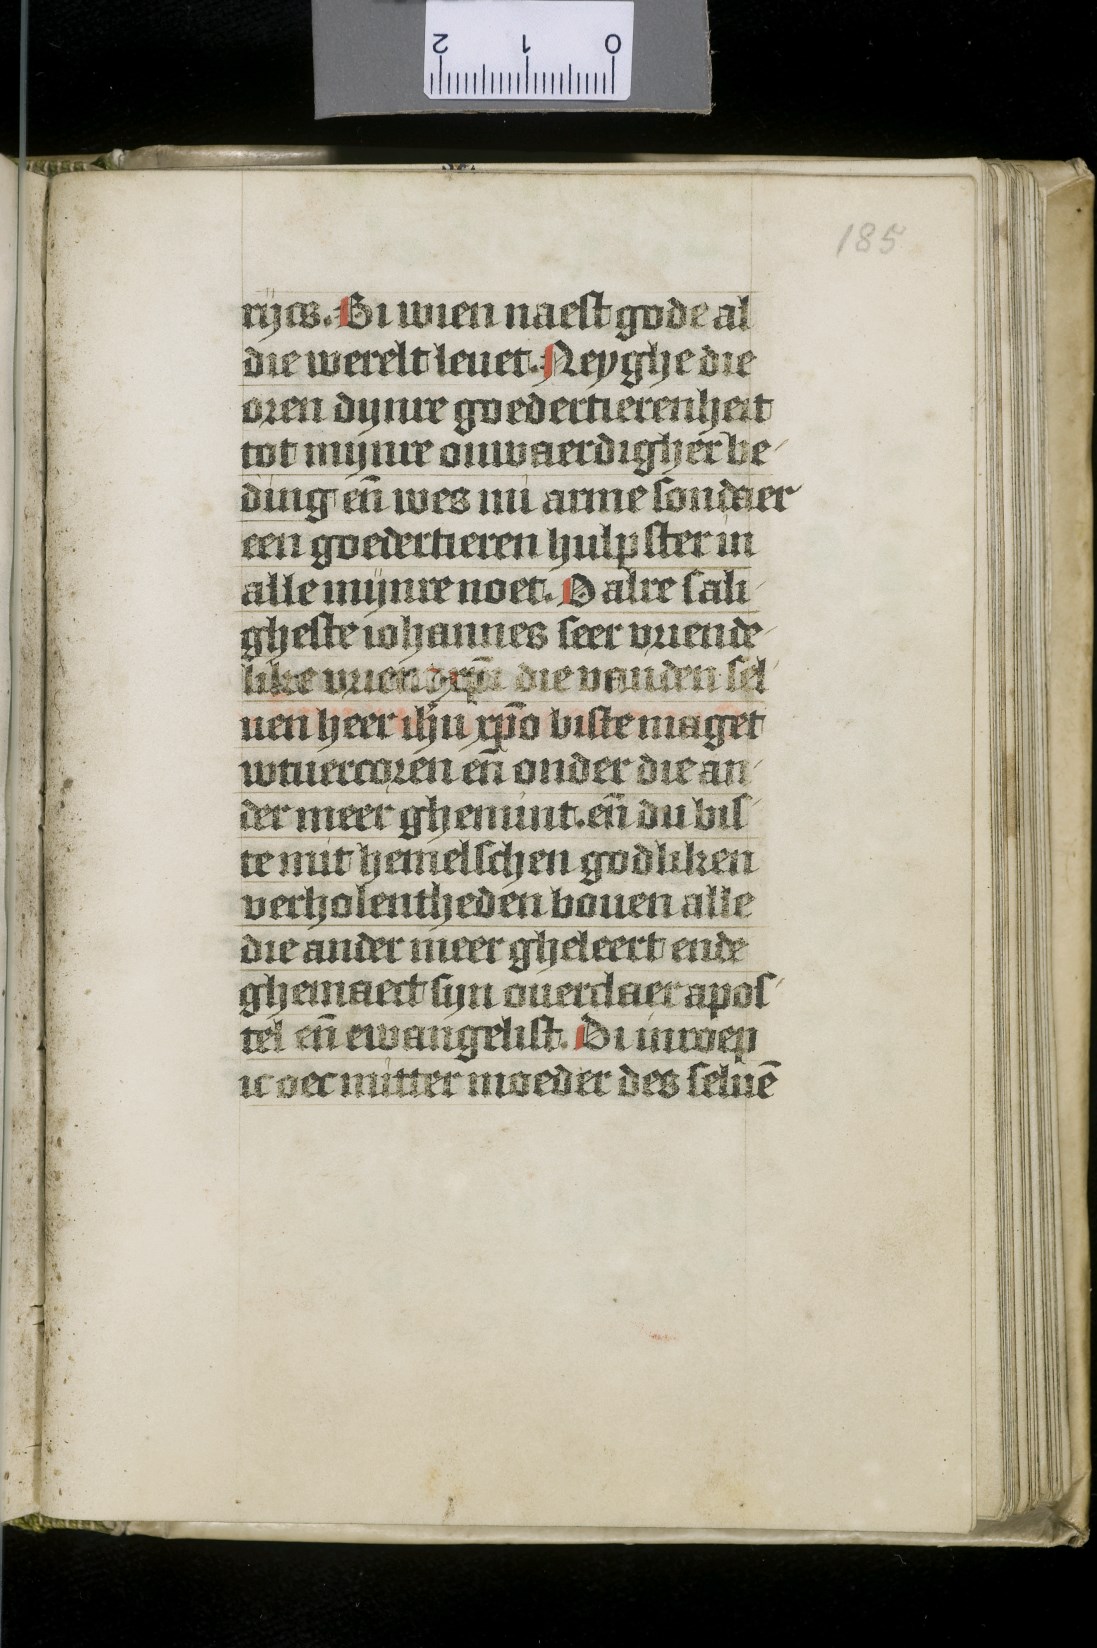 185
rijcs. Bi wien naest gode al
die werelt leuet. Neyghe die
oren dijnre goedertierenheit
tot mijnre onwaerdigher be
ding en̄ wes mi arme sondaer
een goedertieren hulpster in
alle mijnre noet. O alre sali
gheste iohannes seer vriende
like vrient xp̄i die vanden sel
uen heer ihū xp̄o biste maget
wtuercoren en̄ onder die an
der meer ghemint. en̄ du bis
te mit hemelschen godliken
verholentheden bouen alle
die ander meer gheleert ende
ghemaect sijn ouerclaer apos
tel en̄ ewangelist. Di inroep
ic oec mitter moeder des seluē
2 1 0